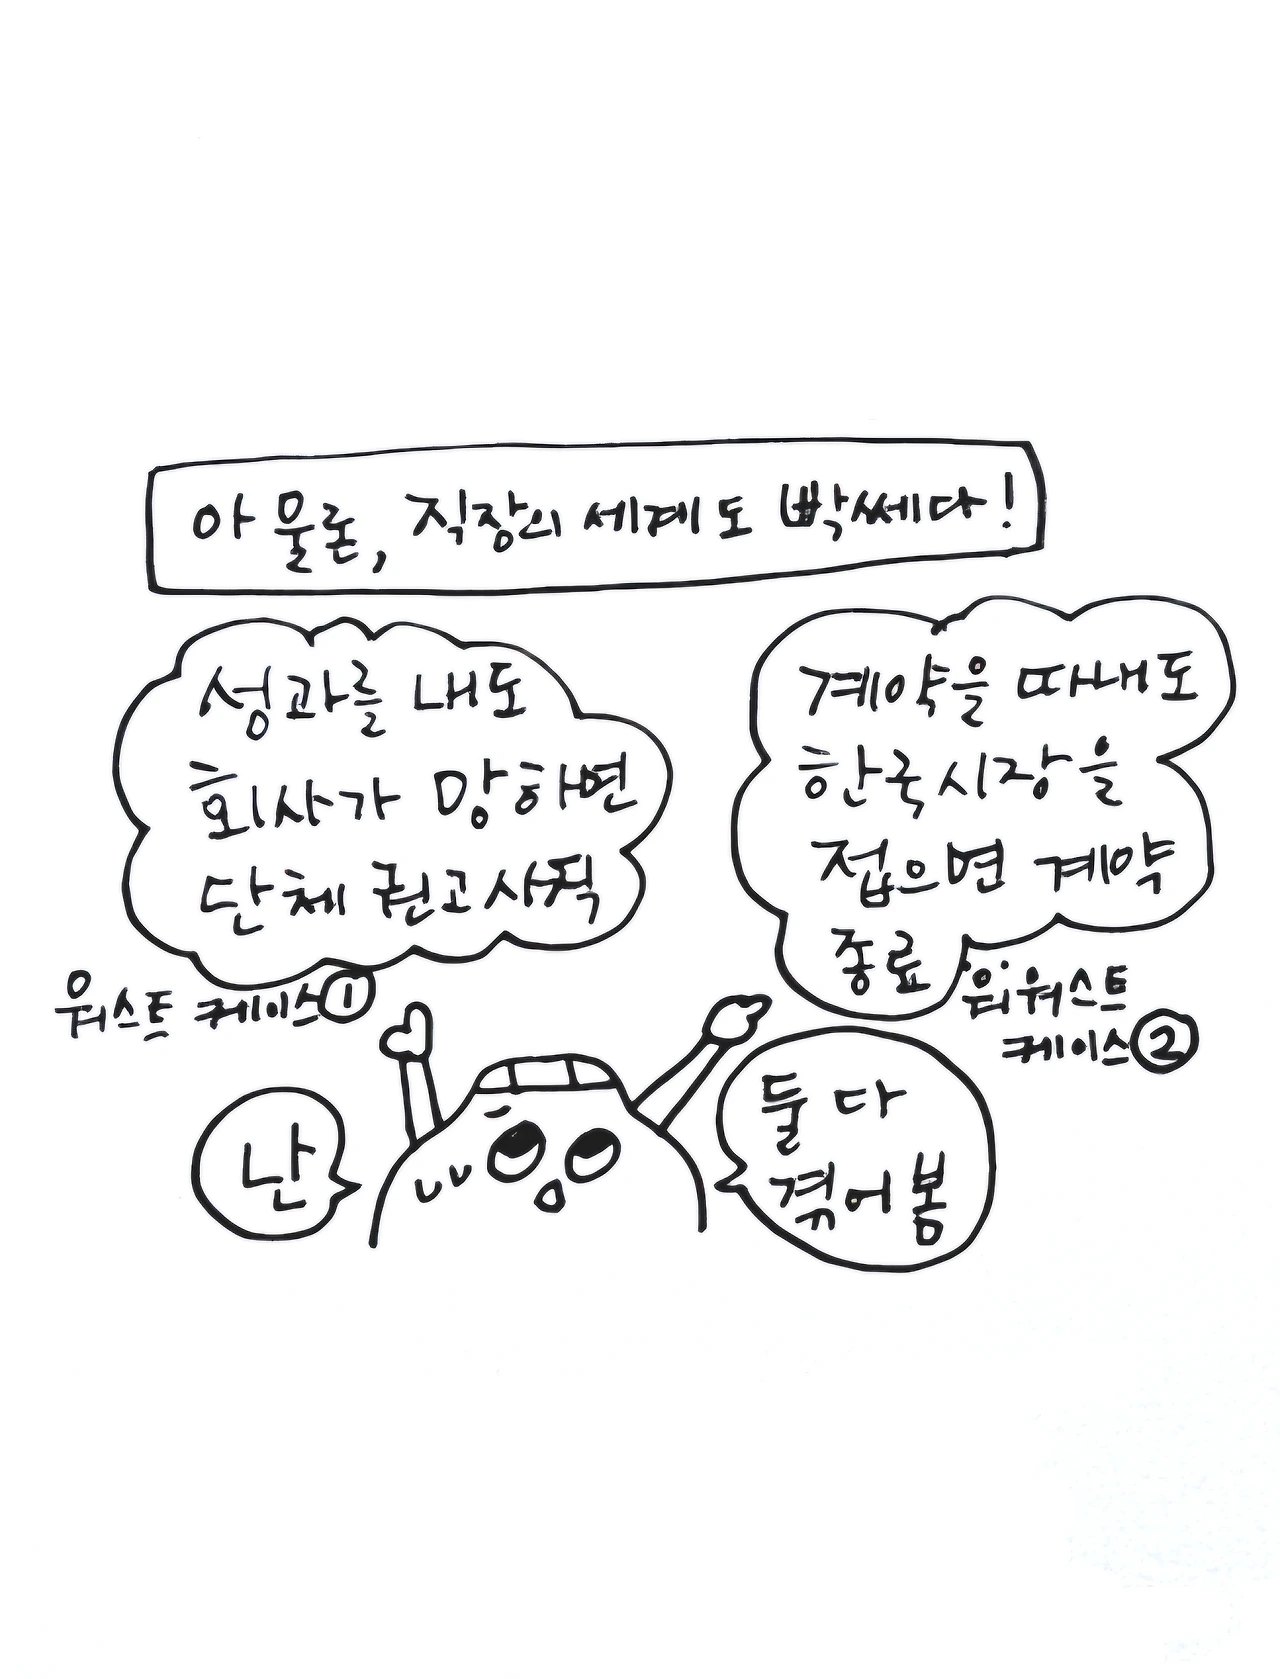 아 물론, 직장의 세계도 빡쎄다!
성과를 내도
회사가 망하면
단체 권고사직
워스트 케이스①
계약을 따내도
한국시장을
접으면 계약
종료
워스트
케이스②
난
둘 다
겪어 봄